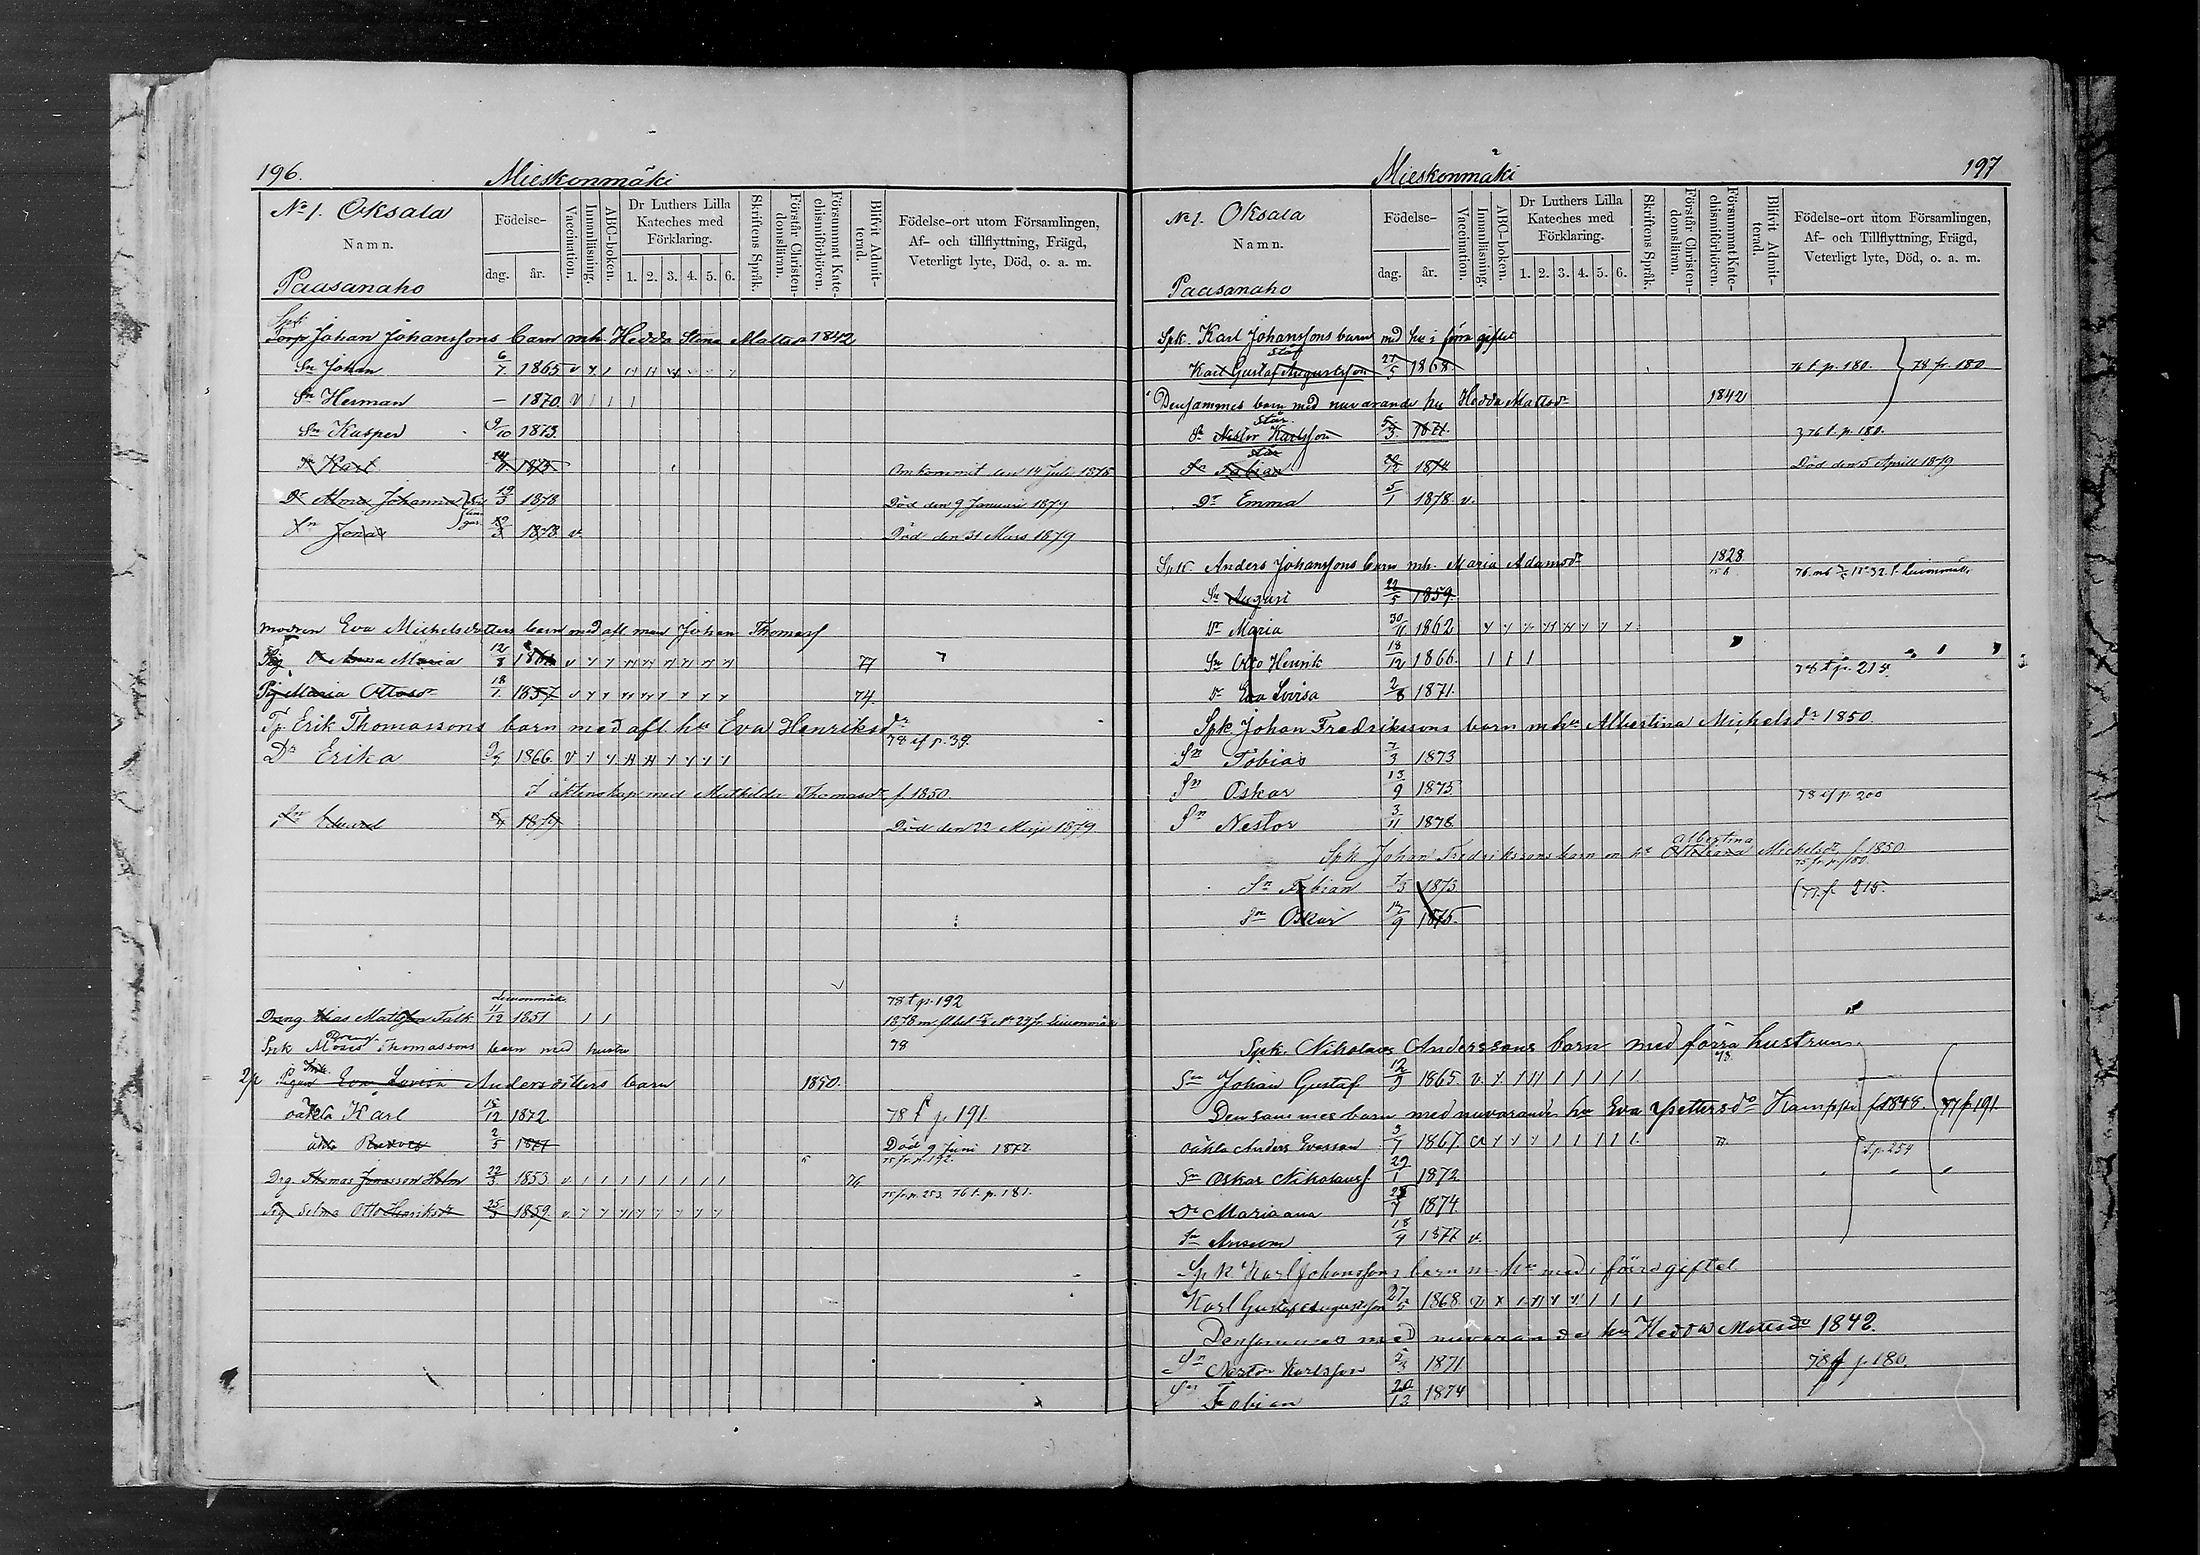 196.
Mieskonmäki
No 1. Oksala
Namn.
Paasanaho
Födelse-
dag. år.
Vaccination.
Innanläsning.
ABC-boken.
Dr Luthers Lilla Kateches med Förklaring.
1. 2. 3. 4. 5. 6.
Skriftens Språk.
Förstår Christendomsläran.
Försummat Katechismiförhören.
Blifvit Admitterad.
Födelse-ort utom Församlingen,
Af- och tillflyttning, Frägd,
Veterligt lyte, Död, o. a. m.
Spk
Torp Johan Johanssons barn mh Hedda Stina Matsdr 1842
Sn Johan 6/7 1865 v
Sn Herman – 1870 v
Sn Kasper 9/10 1873
Sn Karl 1875 Omkommit den 14 Juli 1875
Dr Alma Johanna 19/3 1878 Död den 9 Januari 1879
Sn Jonas 19/3 1878 v Död den 31 Mars 1879
modren Eva Michelsdotters barn med afl. man Johan Thomass
Pig Anna Maria 12/8 77
Pig Maria Ottosdr 18/1 1857 74.
Tp Erik Thomassons barn med afl. hu Eva Henriksdr
Dr Erika 9/7 1866 v 78 if p. 39.
I äktenskap med Mathilda Thomasdr f. 1850.
Sn Edvard 1879 Död den 22 Maji 1879
78 t p. 192
Leivonmäk.
Dräng Elias Matsson Falk 11/12 1851 1878 m. No 24 fr. Leivonmäki
Spk Moses Thomassons barn med hustru 78
Pigan Eva Lovisa Andersdotters barn 1850.
oäkta Karl 15/12 1872 78 f p. 191
äkta 2/5 1877 Död 9 Juni 1877.
75 fr. p. 192.
Drg. Thomas Jonasson Holm 22/3 1853 76
75 fr. p. 253. 76 t. p. 181.
Pig Selma Otto Henriksdr 25/3 1859 v
197
Mieskonmäki
No 1. Oksala
Namn.
Paasanaho
Födelse-
dag. år.
Vaccination.
Innanläsning.
ABC-boken.
Dr Luthers Lilla Kateches med Förklaring.
1. 2. 3. 4. 5. 6.
Skriftens Språk.
Förstår Christendomsläran.
Försummat Katechismiförhören.
Blifvit Admitterad.
Födelse-ort utom Församlingen,
Af- och Tillflyttning, Frägd,
Veterligt lyte, Död, o. a. m.
Spk. Karl Johanssons barn med hu i förra giftet
står
Karl Gustaf Augustsson 27/5 1868 76 t. p. 180. 78 fr. 180
Densammes barn med nuvarande hu Hedda Matsdr 1842
står
Sn Nestor Karlsson 5/3 1871 76 t. p. 180.
står
Sn Fabian 20/12 1874 Död den 5 April 1879
Dr Emma 5/1 1878 v.
Spk. Anders Johanssons barn mh. Maria Adamsdr 1828
Sn August 22/5 1859
Dr Maria 30/11 1862
Sn Otto Henrik 18/12 1866. 78 t p. 215.
Dr Eva Lovisa 2/8 1871.
Spk Johan Fredrikssons barn m hu Albertina Michelsdr 1850
Sn Tobias 7/3 1873
Sn Oskar 13/9 1875 78 if p 200
Sn Nestor 3/11 1878
Albertina
Spk Johan Fredrikssons barn m hu Michelsdr f. 1850
75 fr. p. 180.
Sn Fabian 7/3 1873 77 f. 215.
Sn Oskar 1875.
Spk. Nikolaus Anderssons barn med förra hustrun.
Sn Johan Gustaf 12/9 1865. v.
Densammes barn med nuvarande hu Eva Pettersdr Kamppi f 1848. 77 fr. 191.
oäkta Anders Evasson 3/7 1867. t. p. 254
Sn Oskar Nikolauss. 29/1 1872
Dr Mariaana 1874.
Sn Anselm 18/4 1877 v.
Spk Karl Johanssons barn m hu med i förra giftet
Karl Gustaf Augustsson 27/5 1868
Densammes med nuvarande hu Hedda Matsdr 1842.
Sn Nestor Karlsson 5/3 1871 78 ff p 180.
Sn Fabian 20/12 1874